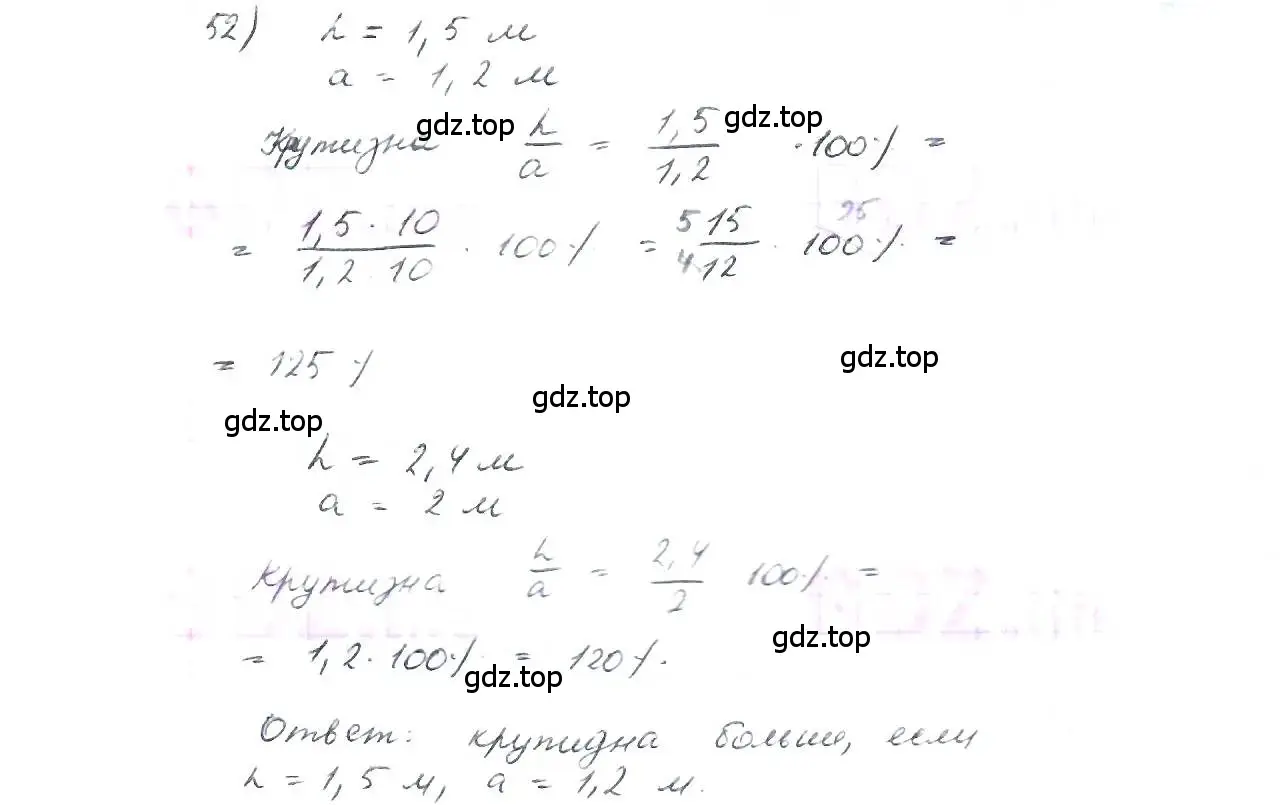 52) h = 1,5 м
a = 1,2 м
gdz.top gdz.top
Крутизна h/a = 1,5/1,2 · 100% =
= 1,5 · 10/1,2 · 10 · 100% = 5 15/4 12 · 100% 25 =
= 125%
gdz.top
gdz.top
gdz.top
h = 2,4 м
a = 2 м
Крутизна h/a = 2,4/2 100% =
= 1,2 · 100% = 120%.
gdz.top
gdz.top
Ответ: крутизна больше, если
h = 1,5 м, a = 1,2 м.